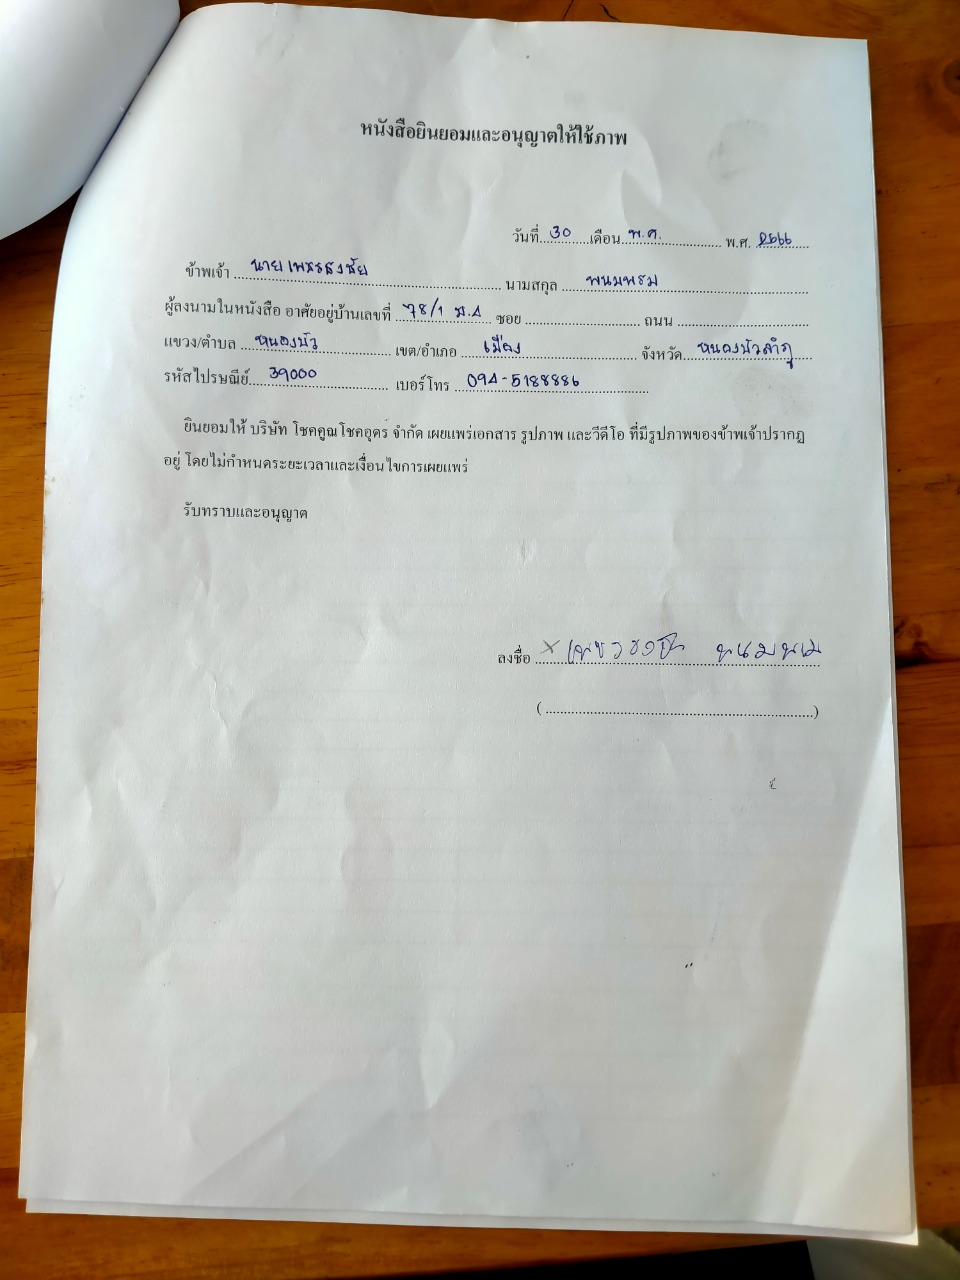 หนังสือยินยอมและอนุญาตให้ใช้ภาพ
วันที่ 30 เดือน พ.ค. พ.ศ. 2566
ข้าพเจ้า นาย นามสกุล พนมพรม
ผู้ลงนามในหนังสือ อาศัยอยู่บ้านเลขที่ 78/1 ม.4 ซอย ถนน
แขวง/ตำบล หนองบัว เขต/อำเภอ เมือง จังหวัด หนองบัวลำภู
รหัสไปรษณีย์ 39000 เบอร์โทร 094-5188886
ยินยอมให้ บริษัท โชคคูณโชคอุดร จำกัด เผยแพร่เอกสาร รูปภาพ และวีดีโอ ที่มีรูปภาพของข้าพเจ้าปรากฏ
อยู่ โดยไม่กำหนดระยะเวลาและเงื่อนไขการเผยแพร่
รับทราบและอนุญาต
ลงชื่อ